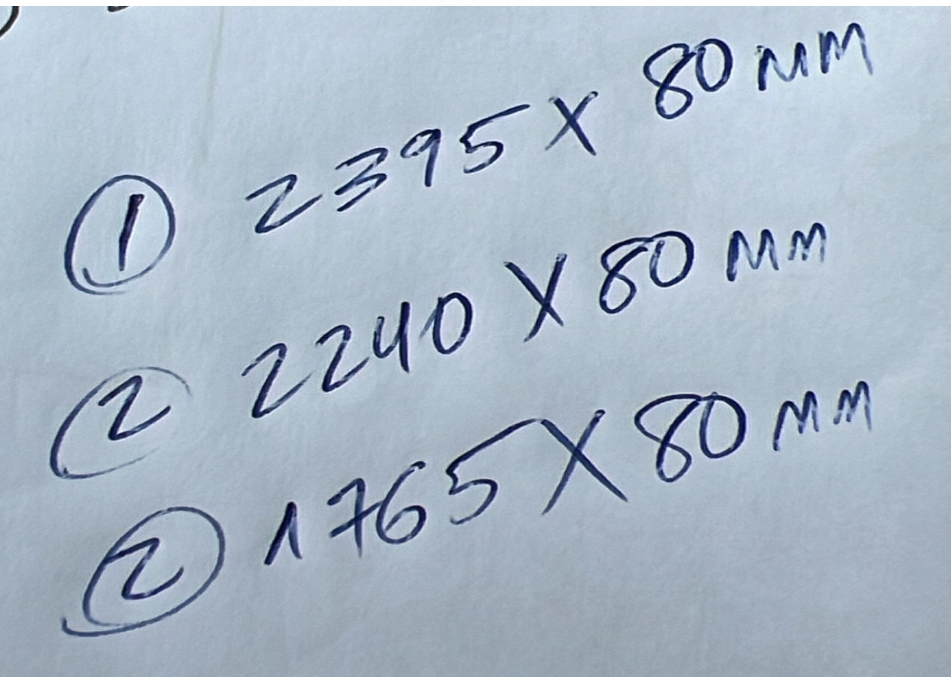 1 2395 X 80 MM
2 2240 X 80 MM
2 1765 X 80 MM